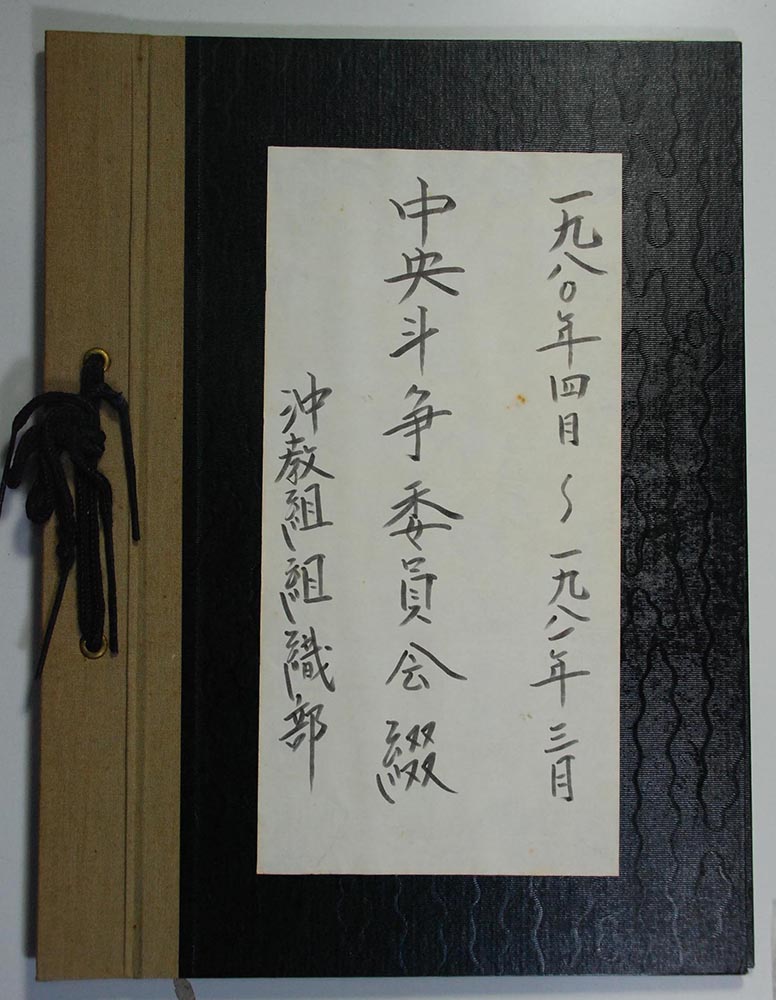 一九八〇年四月〜一九八一年三月
中央斗争委員会綴
沖教組組織部